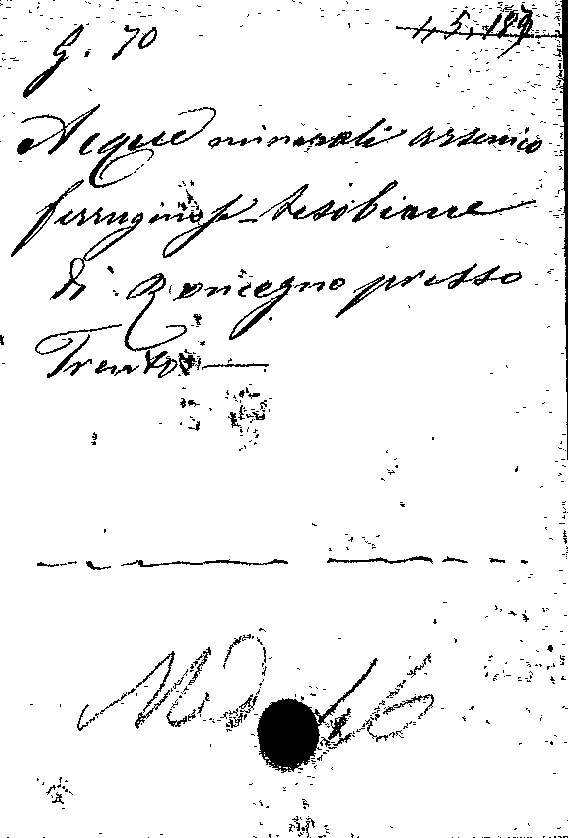 G. 70
Acque minerali arsenico
ferruginose tesobiane
di Roncegno presso
Trento
Med